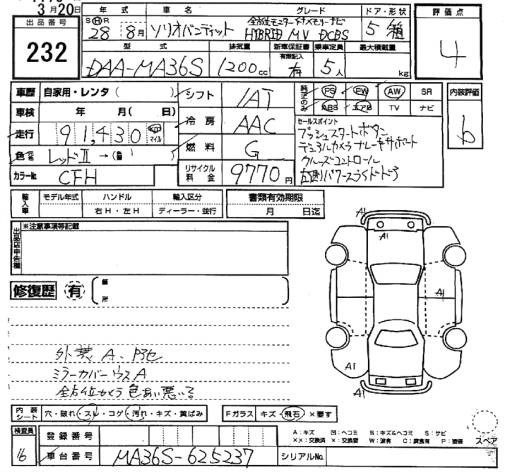 3月20日
出品番号
232
年式 車名 グレード ドア・形状 評価点
28年 8月 ソリオバンディット 全方位モニターナメモリーナビ HYBRID MV DCBS 5 箱
4
型式 排気量 新車保証書 乗車定員 最大積載量
DAA-MA36S 1200cc 有 5人 kg
車歴 自家用・レンタ( ) シフト IAT PS PW AW SR 内装評価
車検 年 月( 日) 冷房 AAC ABS エアB TV ナビ b
走行 91,430 マイル 燃料 G セールスポイント
色 レッドII →( ) プッシュスタートボタン
カラーNo CFH リサイクル料金 9770円 デュアルカメラブレーキサポート
クルーズコントロール
左側パワースライドドア
輸入車 モデル年式 ハンドル 輸入区分 書類有効期限
右H・左H ディーラー・並行 月 日迄
※注意事項等記載
修復歴 有 ( 箇所
A1
A1
A1
外装 A、
ミラーカバーウスA
全方位カメラ 色あい悪い
内装シート 穴・破れ・スレ・コゲ・汚れ・キズ・黄ばみ Fガラス キズ・飛石・×要す
スペア
検査員 16 登録番号
A:キズ 凹:ヘコミ B:キズ&ヘコミ S:サビ
××:交換済 ×:要交換 W:波有 C:腐食有 P:塗装
車台番号 MA36S-625237 シリアルNo.